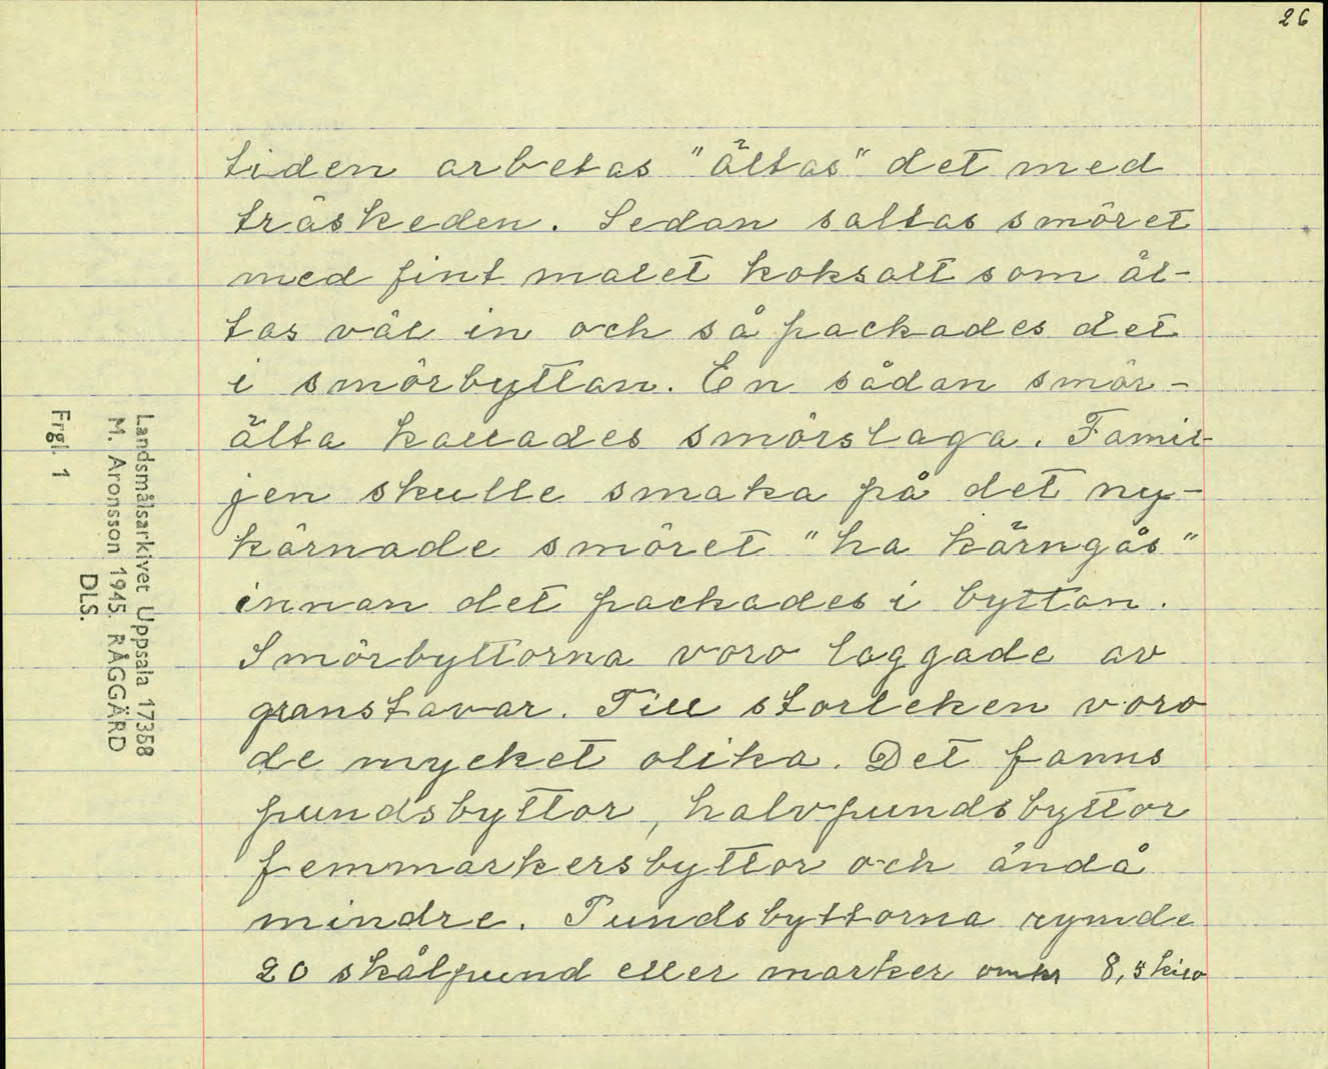 26
tiden arbetas "ältas" det med
träskeden. Sedan saltas smöret
med fint malet koksalt som äl-
tas väl in och så packades det
i smörbyttan. En sådan smör-
älta kallades smörslaga. Famil-
jen skulle smaka på det ny-
kärnade smöret "ha kärngås"
innan det packades i byttan.
Smörbyttorna voro laggade av
granstavar. Till storleken voro
de mycket olika. Det fanns
pundsbyttor, halvpundsbyttor
femmarkersbyttor och ändå
mindre. Pundsbyttorna rymde
20 skålpund eller marker omkr 8,5 kilo
Landsmålsarkivet Uppsala 17358
M. Aronsson 1945. RÅGGÄRD
DLS.
Frgl. 1